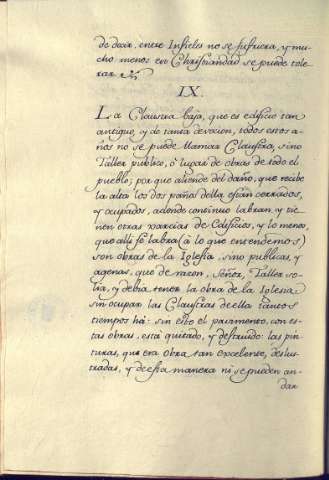 de decir, entre Infieles no se sufriera, y mu-
cho menos en Christiandad se puede tole-
rar.
IX.
La Claustra baja, que es edificio tan
antiguo, y de tanta devocion, todos estos a-
ños no se puede llamar Claustra, sino
Taller publico, ò lugar de obras de todo el
pueblo; por que aliende del daño, que recibe
la alta los dos paños della estàn cerrados,
y ocupados, adonde contino labran, y tie-
nen otras parcias de Edificios, y lo menos,
que alli se labra (à lo que entendemos)
son obras de la Iglesia, sino publicas, y
agenas, que de razon, Señor, Taller so-
lia, y debia tener la obra de la Iglesia
sin ocupar las Claustras de ella tantos
tiempos há: sin esto el pavimento, con es-
tas obras, està quitado, y destruido: las pin-
turas, que era obra tan excelente, deslus-
tradas, y de esta manera ni se pueden an-
dar